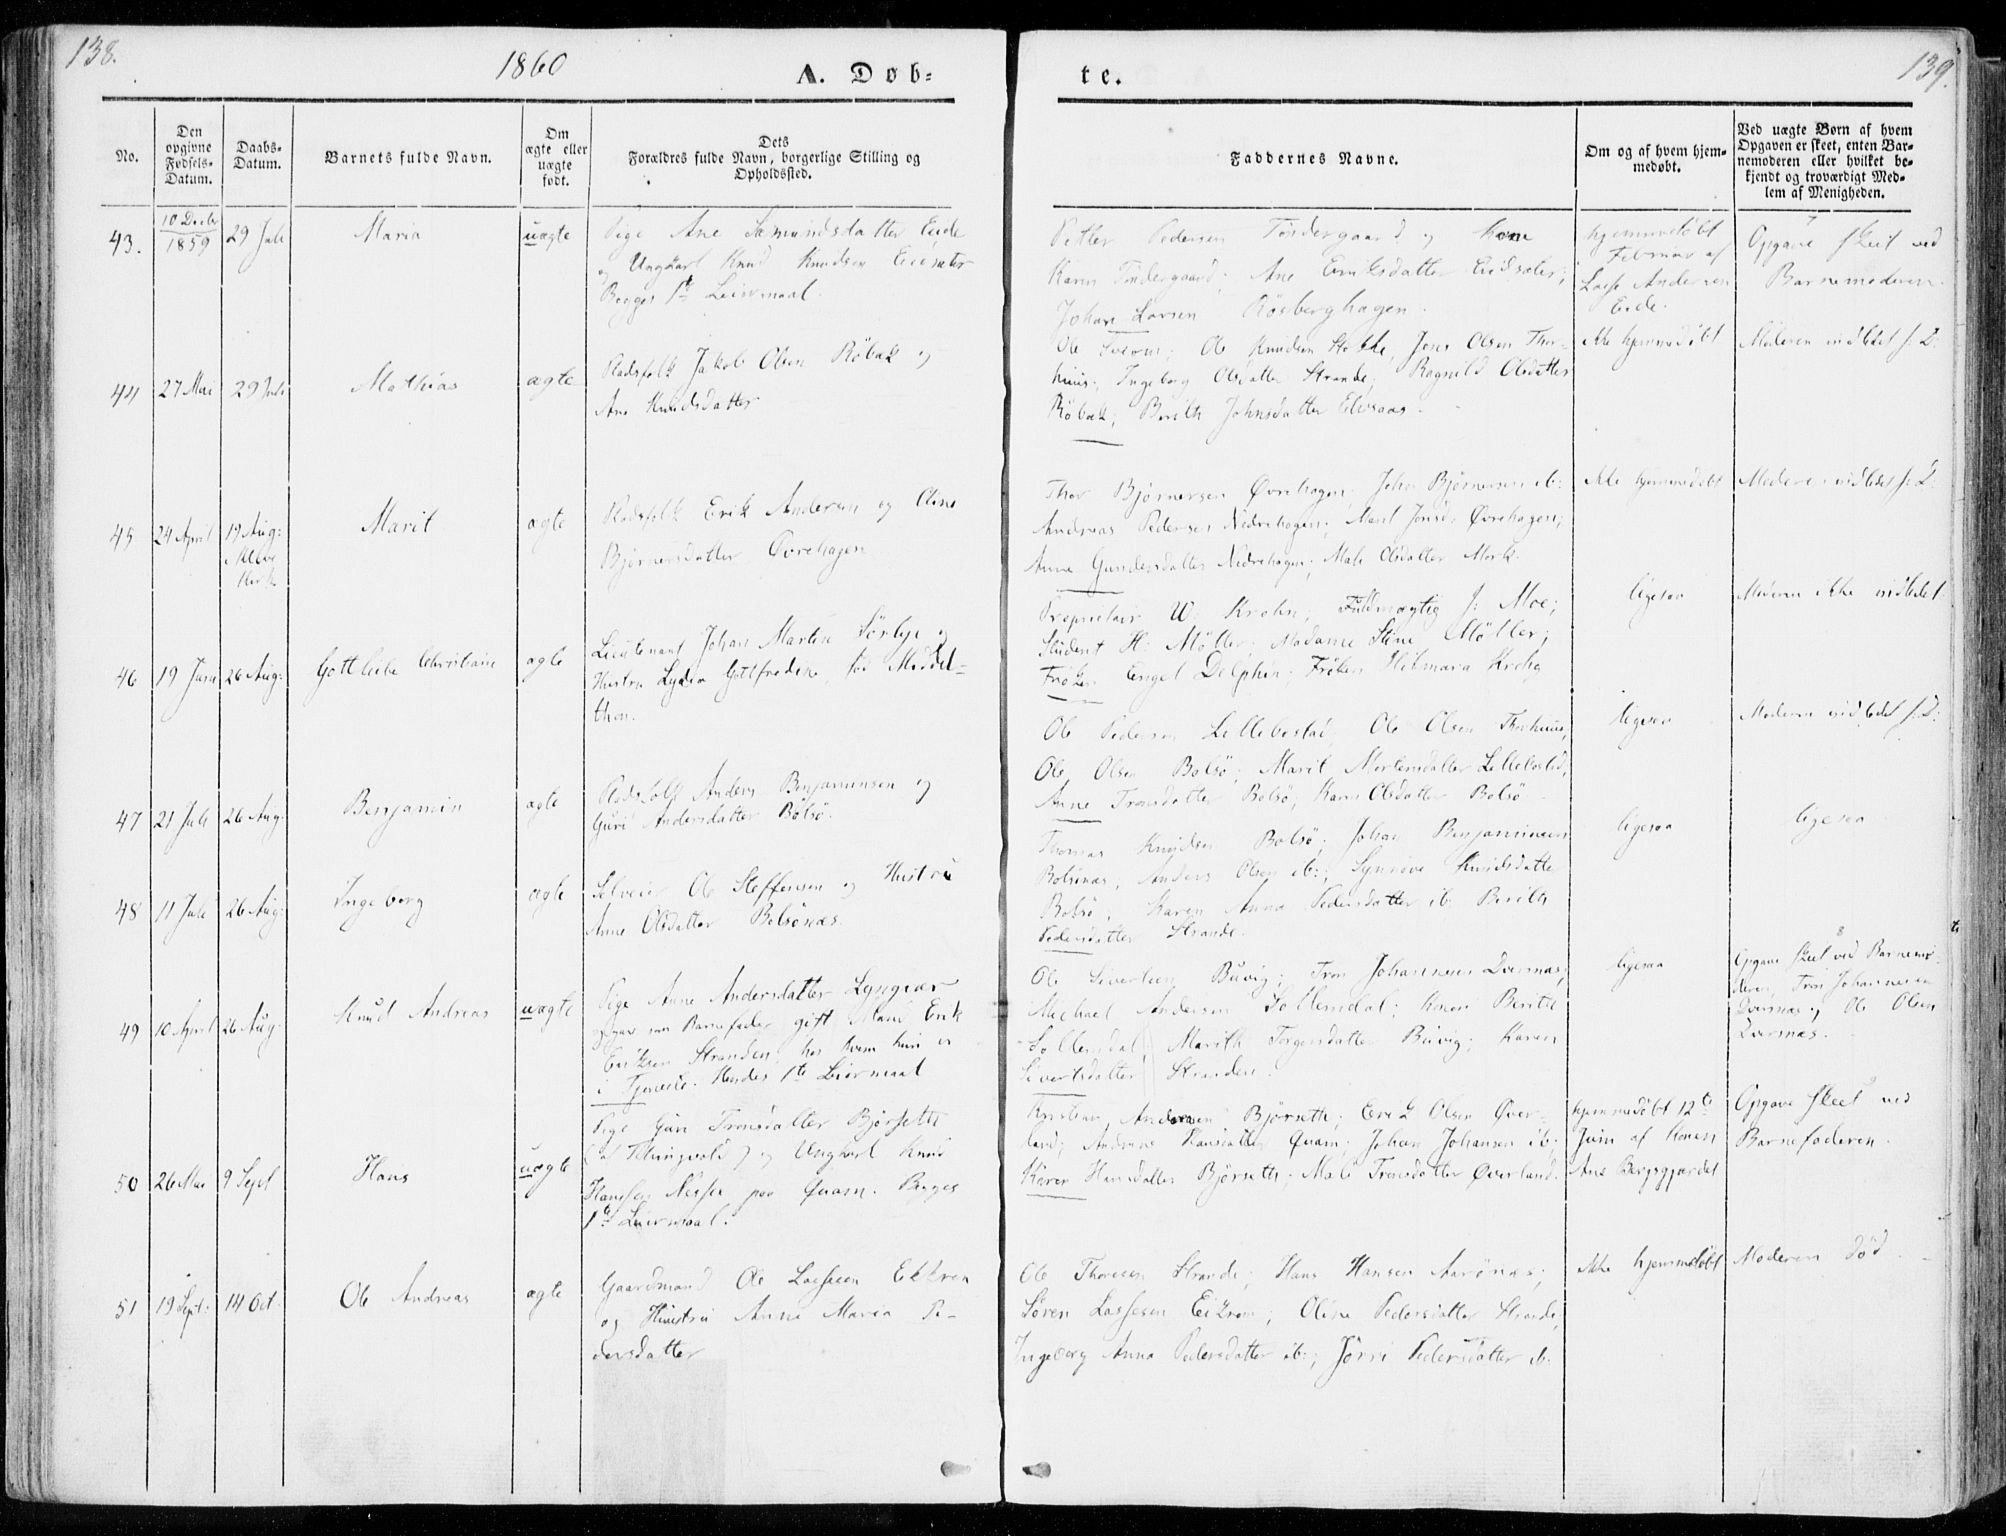 138.
1860
A. Døb=
te.
139.
No.
Den opgivne Fødsels-Datum.
Daabs-Datum.
Barnets fulde Navn.
Om ægte eller uægte født.
Dets Forældres fulde Navn, borgerlige Stilling og Opholdssted.
Faddernes Navne.
Om og af hvem hjem-medøbt.
Ved uægte Børn af hvem
Opgaven er skeet, enten Bar-
nemoderen eller hvilket be-
kjendt og troværdigt Med-
lem af Menigheden.
43. 10 Decb 1859 29 Juli Maria uægte
Pige Ane Samundsdatter Eide
og Ungkarl Knud Knudsen Eidsæter
Begges 1te Leiermaal.
Petter Pedersen Tøndergaard og Kone
Karen Tøndergaard; Ane Eriksdatter Eidsæter;
Johan Larsen Røsberghagen.
hjemmedøbt
Februar af
Lasse Andersen
Eide.
Opgave skeet ved
Barnemoderen.
44 27 Mai 29 Juli Mathias ægte
Radsfolk Jakob Olsen Røbæk og
Ane Knudsdatter
Ole Knudsen Jons Olsen Thor-
huus; Ingeborg Olsdatter Strande; Ragnild Olsdatter
Røbæk; Berith Johnsdatter Elvsaas.
ikke hjemmedøbt
Moderen indledet s. D:
45 24 April 19 Aug: Kleve Kirk Marit ægte
Radsfolk Erik Andersen og Ane
Bjørnersdatter Øvrehagen
Thor Bjørnersen Øvrehagen; John Bjørnersen ib:
Andreas Pedersen Nedrehagen; Marit Jonsd. Øvrehagen;
Anne Gundersdatter Nedrehagen; Mali Olsdatter Mork.
ikke hjemmedøbt
Moderen indledet s. D:
46 19 Juni 26 Aug: Gottliebe Christiane ægte
Lieutenant Johan Martin Sørbye og
Hustru Lydia Gottfredine, fød Middel-
thon.
Proprietair W. Krohn; Fuldmægtig J: Moe;
Student H: Møller; Madame Stine Møller;
Frøken Engel Delphin; Frøken Hilmara Krohg
ligesaa
Moderen ikke indledet
47 21 Juli 26 Aug. Benjamin ægte
Radsfolk Anders Benjaminsen og
Guri Andersdatter Bolsø.
Ole Pedersen Lillebostad; Ole Olsen Thorhuus,
Ole Olsen Bolsø; Marit Mortensdatter Lillebostad,
Anne Tronsdatter Bolsø; Karen Olsdatter Bolsø
ligesaa
Moderen indledet s. D:
48 11 Juli 26 Aug: Ingeborg ægte
Selveier Ole Steffensen og Hustru
Anne Olsdatter Bolsønæs.
Thomas Knudsen Bolsø; Johan Benjaminsen
Bolsønæs; Anders Olsen ib:; Synnøve Knudsdatter
Bolsø; Karen Anna Pedersdatter ib. Berith
Pedersdatter Strande.
ligesaa
ligesaa
49 10 April 26 Aug. Knud Andreas uægte
Pige Anne Andersdatter Lyngvær
opgav som Barnefader gift Mand Erik
Eriksen Stranden, hos hvem hun er
i Tjeneste. Hendes 1te Leiermaal
Ole Sivertsen Buvig; Tron Johannesen Dversnæs;
Michael Andersen Sollemdal; Konen Berith
Sollemdal, Marith Torgersdatter Buvig; Karen
Sivertsdatter Stranden.
ligesaa
Opgave skeet ved Barnemo-
deren, Tron Johannesen
Dversnæs og Ole Olsen
Dversnæs.
50 26 Mai 9 Sept Hans uægte
Pige Guri Tronsdatter Bjørseth
og Ungkarl Knud
Hanssen Nesse paa Quam. Begges
1te Leiermaal.
Kristian Andersen Bjørseth; Erik Olsen Øver-
land; Andrine Hansdatter Quam; Johan Johansen ib:
Karen Hansdatter Bjørseth. Mali Tronsdatter Øverland.
hjemmedøbt 12te
Juni af Konen
Ane Bergsgjærdet
Opgave skeet ved
Barnefaderen.
51 19 Sept: 14 Oct. Ole Andreas ægte
Gaardmand Ole Lassesen Eikrem
og Hustru Anne Maria Pe-
dersdatter
Ole Thoresen Strande; Hans Hansen Aarønæs;
Søren Lassesen Eikrem; Oline Pedersdatter Strande,
Ingeborg Anna Pedersdatter ib:; Jørri Pedersdatter ib.
ikke hjemmedøbt
Moderen død.